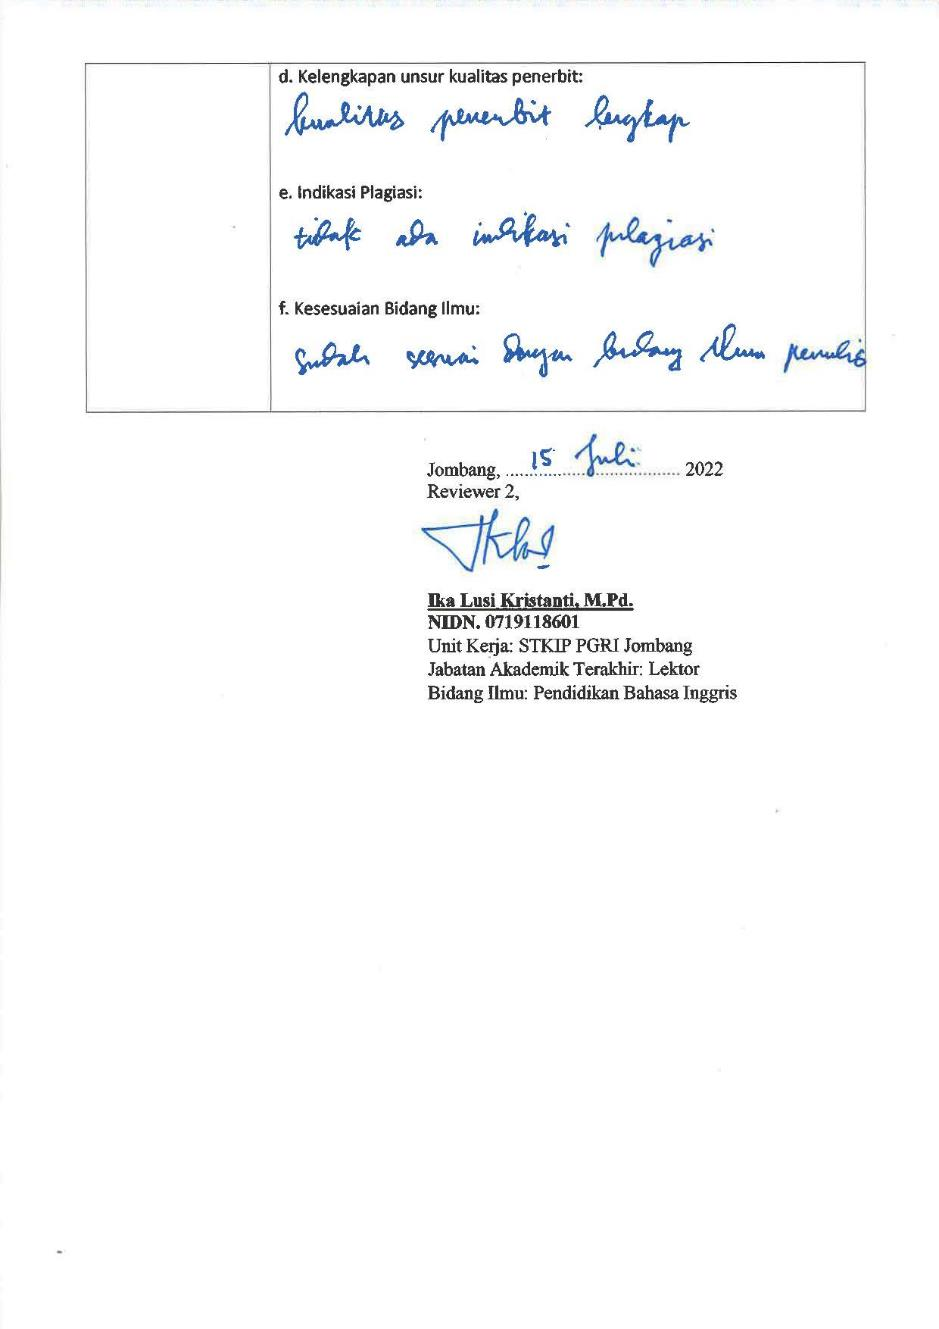 d. Kelengkapan unsur kualitas penerbit:
kualitas penerbit lengkap
e. Indikasi Plagiasi:
tidak ada indikasi plagiasi
f. Kesesuaian Bidang Ilmu:
Sudah sesuai dengan bidang Ilmu penulis
Jombang, .....15 Juli..... 2022
Reviewer 2,
Ika Lusi Kristanti, M.Pd.
NIDN. 0719118601
Unit Kerja: STKIP PGRI Jombang
Jabatan Akademik Terakhir: Lektor
Bidang Ilmu: Pendidikan Bahasa Inggris